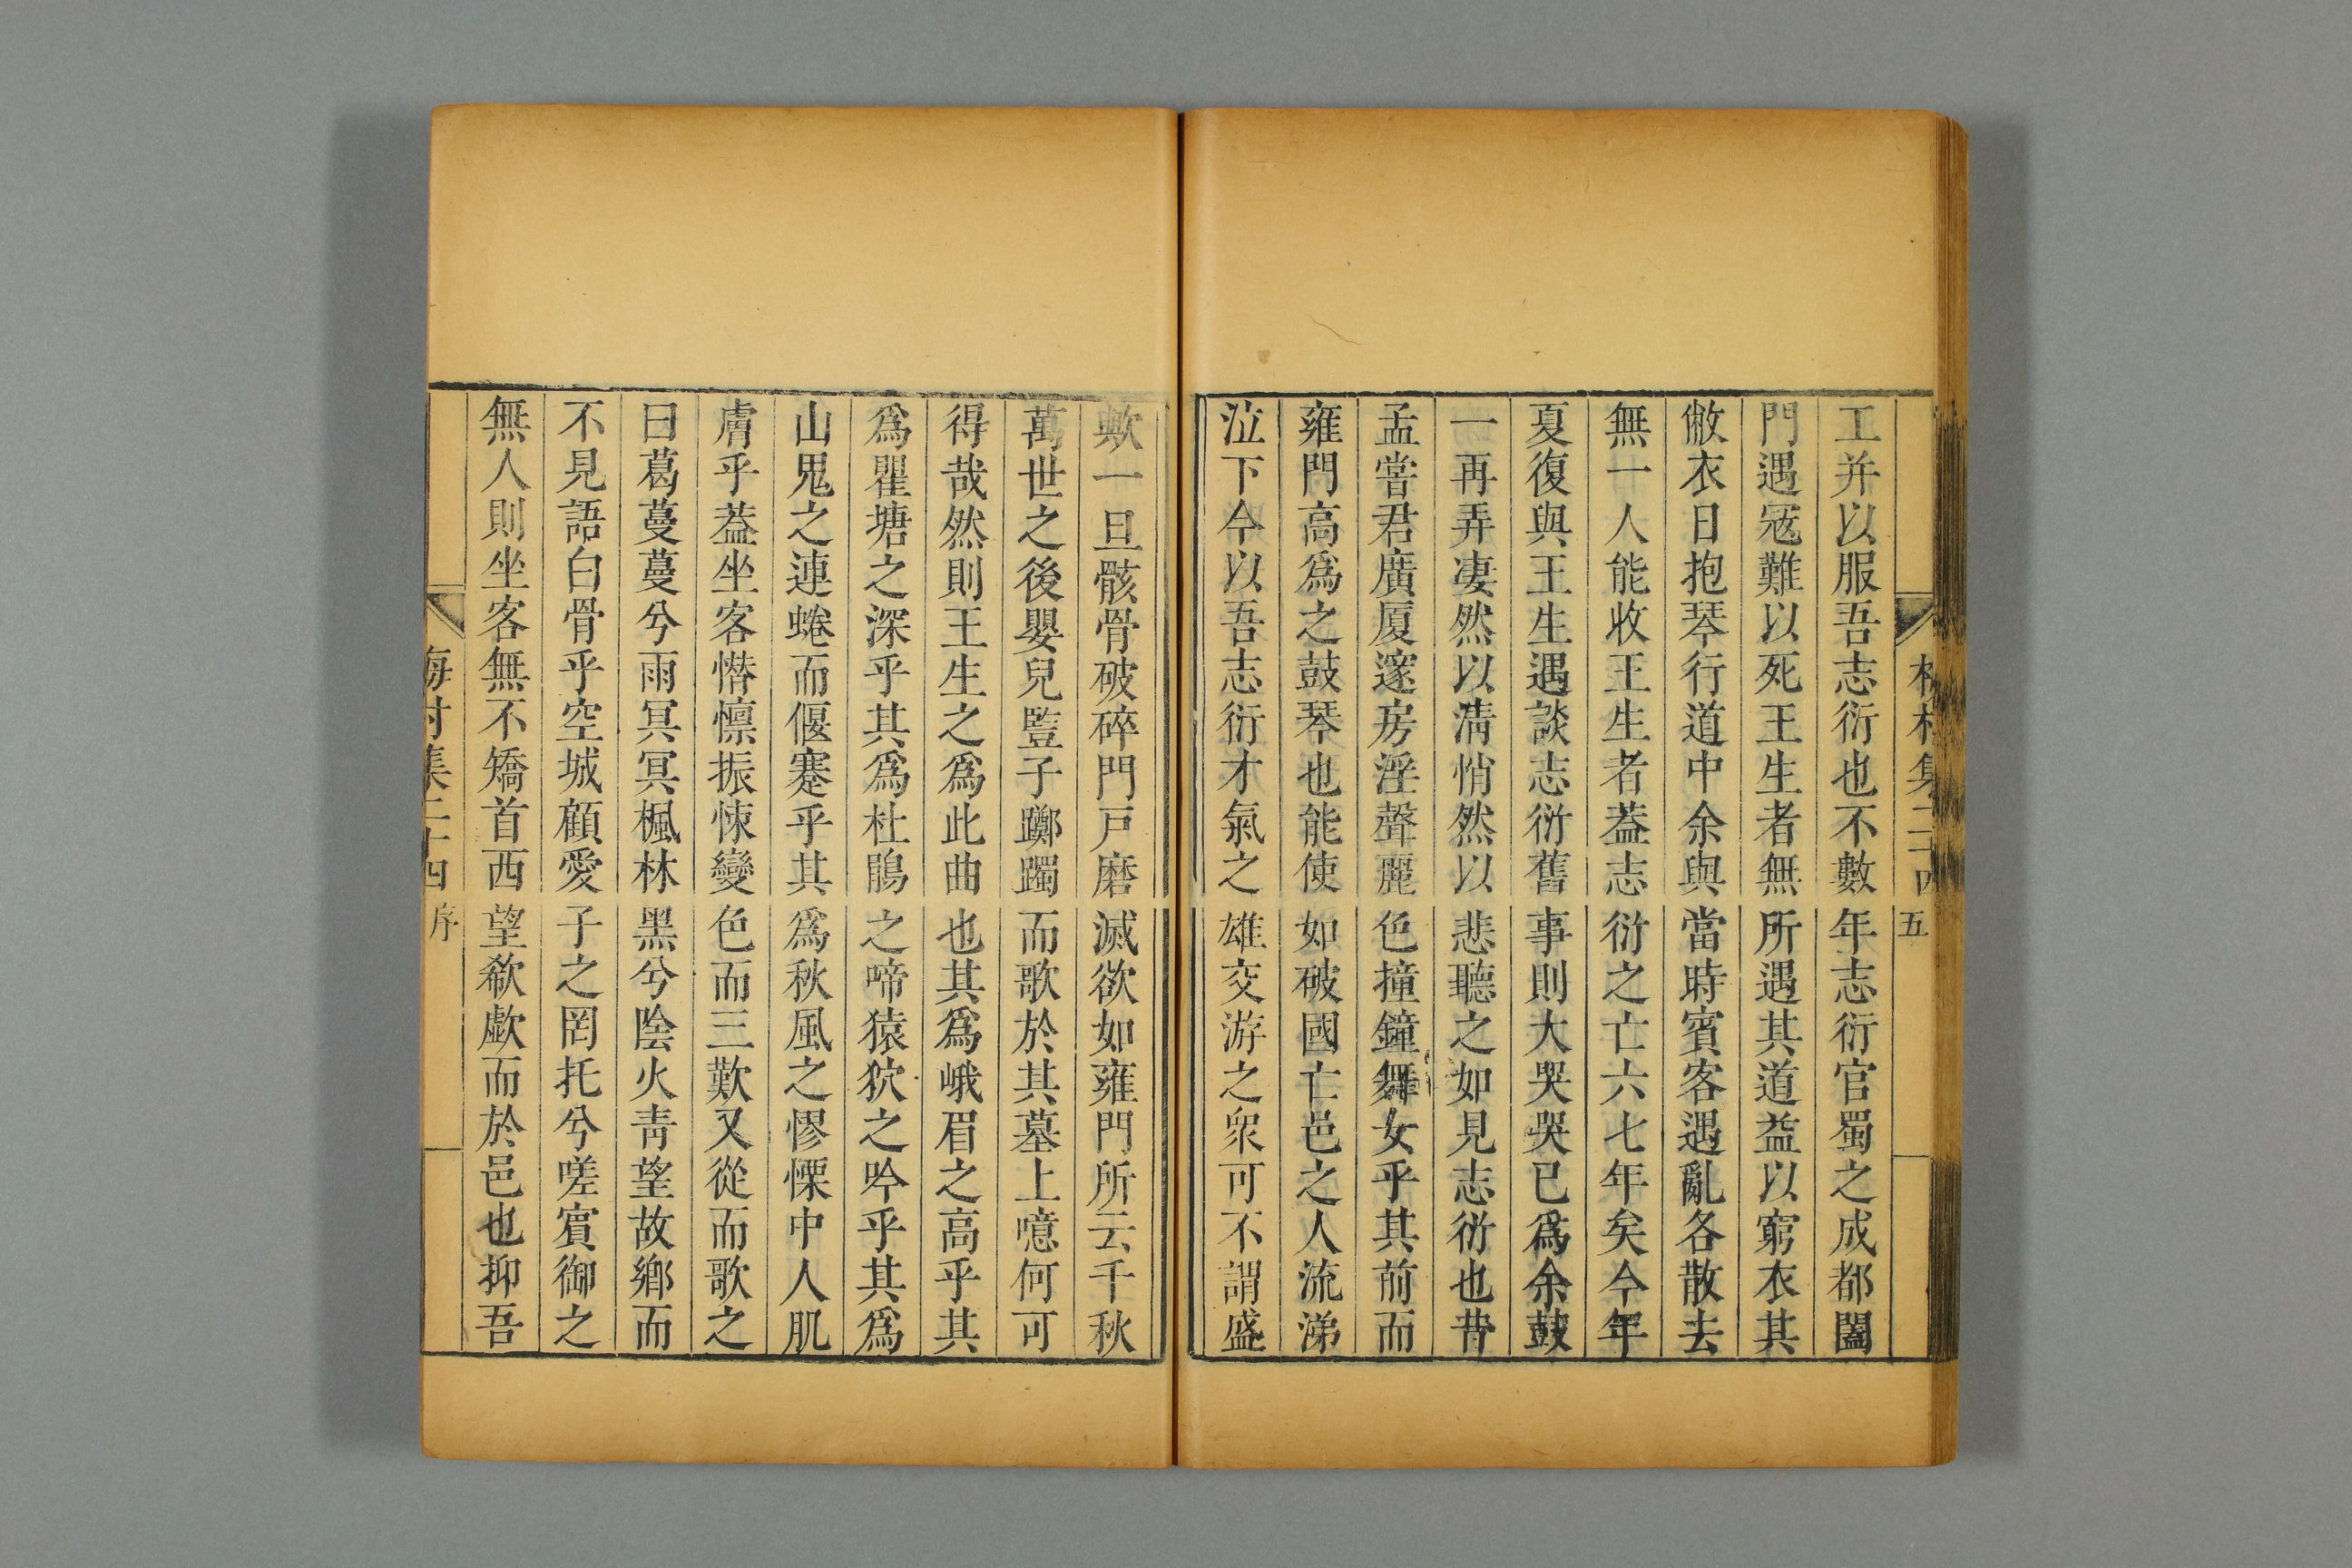 梅村集二十四 五
工并以服吾志衍也不數年志衍官蜀之成都闔
門遇冦難以死王生者無所遇其道益以窮衣其
敝衣日抱琴行道中余與當時賓客遇亂各散去
無一人能收王生者葢志衍之亡六七年矣今年
夏復與王生遇談志衍舊事則大哭哭已爲余鼓
一再弄凄然以淸悄然以悲聽之如見志衍也昔
孟嘗君廣厦邃房淫聲麗色撞鐘舞女乎其前而
雍門高爲之鼓琴也能使如破國亡邑之人流涕
泣下今以吾志衍才氣之雄交游之衆可不謂盛
歟一旦骸骨破碎門戸磨滅欲如雍門所云千秋
萬世之後嬰兒豎子躑躅而歌於其墓上噫何可
得哉然則王生之爲此曲也其爲峨眉之高乎其
爲瞿塘之深乎其爲杜鵑之啼猿狖之吟乎其爲
山鬼之連蜷而偃蹇乎其爲秋風之憀慄中人肌
膚乎葢坐客憯懍振悚變色而三歎又從而歌之
曰葛蔓蔓兮雨冥冥楓林黑兮陰火靑望故鄕而
不見語白骨乎空城顧愛子之罔托兮嗟賓御之
無人則坐客無不矯首西望欷歔而於邑也抑吾
梅村集二十四 序